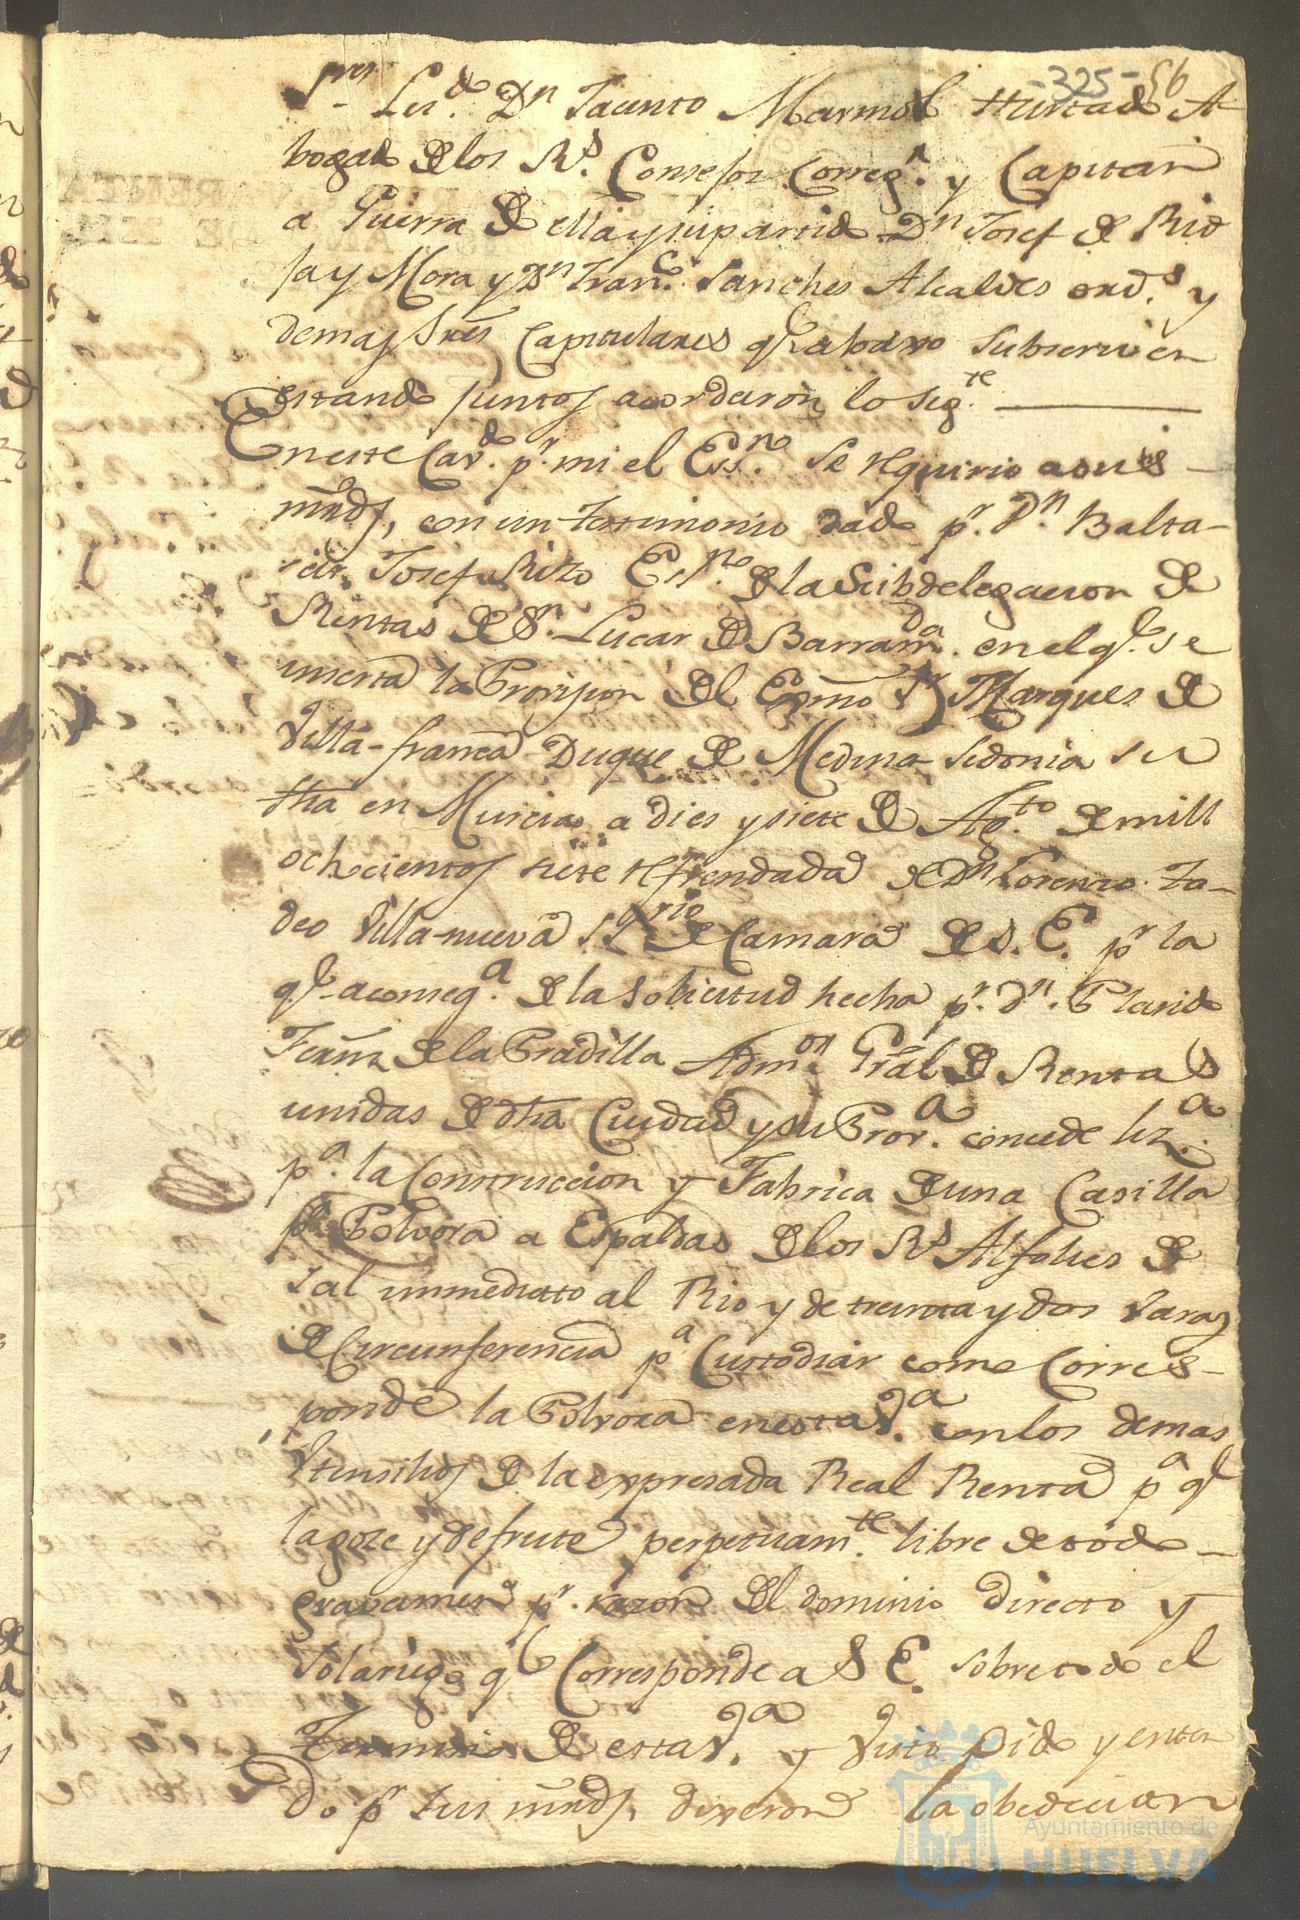 -325- 56
Sres Licdo. Dn Jacinto Marmol Hurtado A-
bogado de los Rs. Consejos Corregr. y Capitan
a Guerra de ella y su partido Dn Josef de Rio
ja y Mora y Dn Franco. Sanches Alcaldes ords. y
demas Sres Capitulares qe. abaxo subscriven
estando juntos acordaron lo sigte.
En este Cavdo. pr. mi el Essno. se requirio a sus
mrds, con un testimonio dado pr. Dn. Balta-
sar Josef Rizo Esno. de la Subdelegacion de
Rentas de Sn. Lucar de Barramda. en el qe. se
inserta la Provision del Exmo Sr Marques de
Villa-franca Duque de Medina Sidonia su
fha en Murcia a dies y siete de Agto. de mill
ochocientos siete refrendada de Dn Lorenzo Ta-
deo Villa-nueva Srio de Camara de S. E. pr la
qe. a conseqa. de la solicitud hecha pr. Dn. Placido
Fernz de la Pradilla Admor. Gral de Rentas
unidas de dha Ciudad y su Prova. concede liza.
pa. la Construccion y Fabrica de una Casilla
pa Polvora a Espaldas de los Rs Alfolies de
sal immediatto al Rio y de treinta y dos varas
de Circunferencia pa Custodiar como Corres-
ponde la Polvora en esta Va. con los demas
Utensilios de la expresada Real Renta pa qe
la goze y desfrute perpetuamte. libre de todo
gravamen pr. razon del dominio directo y
solariego qe Corresponde a S E. sobre todo el
Termino de esta Va. y Visto oido y enten
do pr sus mrds, dixeron la obedecian
Ayuntamiento de
HUELVA